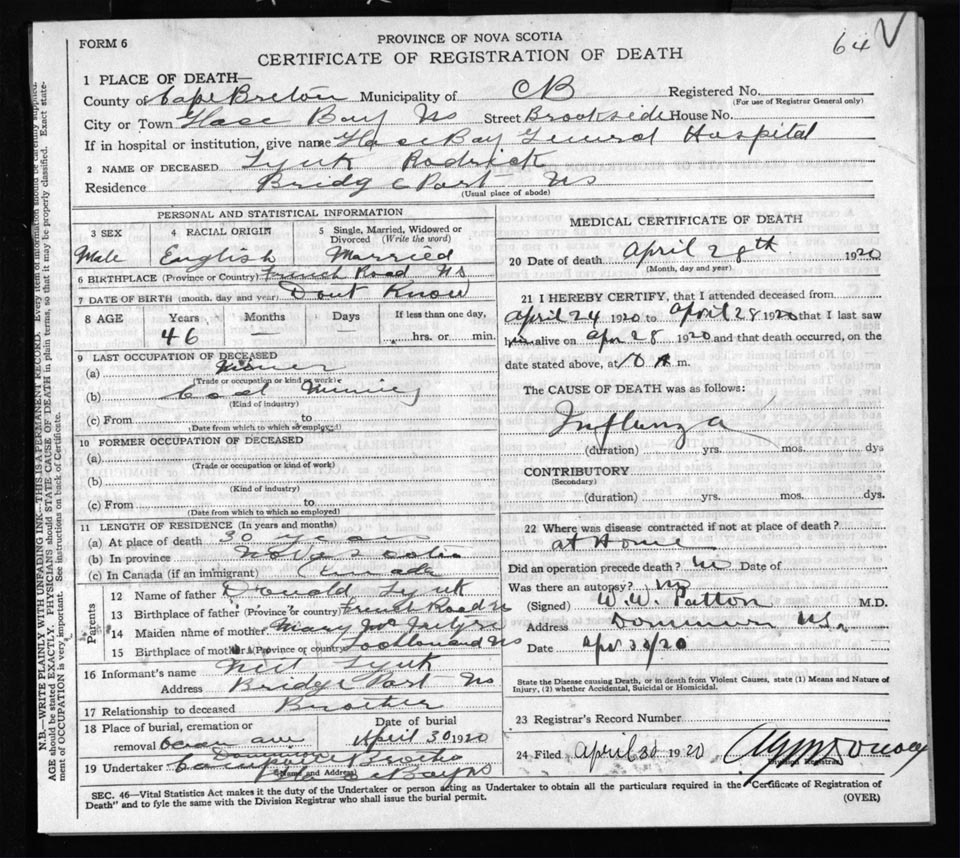 64 V
FORM 6
PROVINCE OF NOVA SCOTIA
CERTIFICATE OF REGISTRATION OF DEATH
1 PLACE OF DEATH—
County of Cape Breton Municipality of CB Registered No.
(For use of Registrar General only)
City or Town Glace Bay NS Street Brookside House No.
If in hospital or institution, give name Glace Bay General Hospital
2 NAME OF DECEASED Lynk Rodrick
Residence Bridge Port NS
(Usual place of abode)
PERSONAL AND STATISTICAL INFORMATION
3 SEX 4 RACIAL ORIGIN 5 Single, Married, Widowed or Divorced (Write the word)
Male English Married
6 BIRTHPLACE (Province or Country) French Road NS
7 DATE OF BIRTH (month, day and year) Dont Know
8 AGE Years Months Days If less than one day,
46 — — hrs. or min.
9 LAST OCCUPATION OF DECEASED
(a) Miner
(Trade or occupation or kind of work)
(b) Coal Mining
(Kind of industry)
(c) From to
(Date from which to which so employed)
10 FORMER OCCUPATION OF DECEASED
(a)
(Trade or occupation or kind of work)
(b)
(Kind of industry)
(c) From to
(Date from which to which so employed)
11 LENGTH OF RESIDENCE (In years and months)
(a) At place of death 30 years
(b) In province Nova Scotia
(c) In Canada (if an immigrant) Canada
Parents
12 Name of father Donald Lynk
13 Birthplace of father (Province or country) French Road N
14 Maiden name of mother Mary McIntyre
15 Birthplace of mother (Province or country) NS
16 Informant's name Neil Lynk
Address Bridge Port NS
17 Relationship to deceased Brother
18 Place of burial, cremation or Date of burial
removal Ocean ave April 30 1920
Dominion
19 Undertaker
(Name and Address) Bay NS
MEDICAL CERTIFICATE OF DEATH
20 Date of death April 28th 1920
(Month, day and year)
21 I HEREBY CERTIFY, that I attended deceased from
April 24 1920 to April 28 1920 that I last saw
him alive on Apr 28 1920 and that death occurred, on the
date stated above, at 10 A m.
The CAUSE OF DEATH was as follows:
Influnza
(duration) yrs. mos. dys
CONTRIBUTORY
(Secondary)
(duration) yrs. mos. dys.
22 Where was disease contracted if not at place of death?
at Home
Did an operation precede death? No Date of
Was there an autopsy? No
(Signed) W.W. Patton M.D.
Address Dominion NS.
Date Apr 30/20
State the Disease causing Death, or in death from Violent Causes, state (1) Means and Nature of
Injury, (2) whether Accidental, Suicidal or Homicidal.
23 Registrar's Record Number
24 Filed April 30 1920
Division Registrar
SEC. 46—Vital Statistics Act makes it the duty of the Undertaker or person acting as Undertaker to obtain all the particulars required in the "Certificate of Registration of
Death" and to fyle the same with the Division Registrar who shall issue the burial permit.
(OVER)
N.B.—WRITE PLAINLY WITH UNFADING INK—THIS IS A PERMANENT RECORD. Every item of information should be carefully supplied.
AGE should be stated EXACTLY. PHYSICIANS should STATE CAUSE OF DEATH in plain terms, so that it may be properly classified. Exact state-
ment of OCCUPATION is very important. See instructions on back of Certificate.